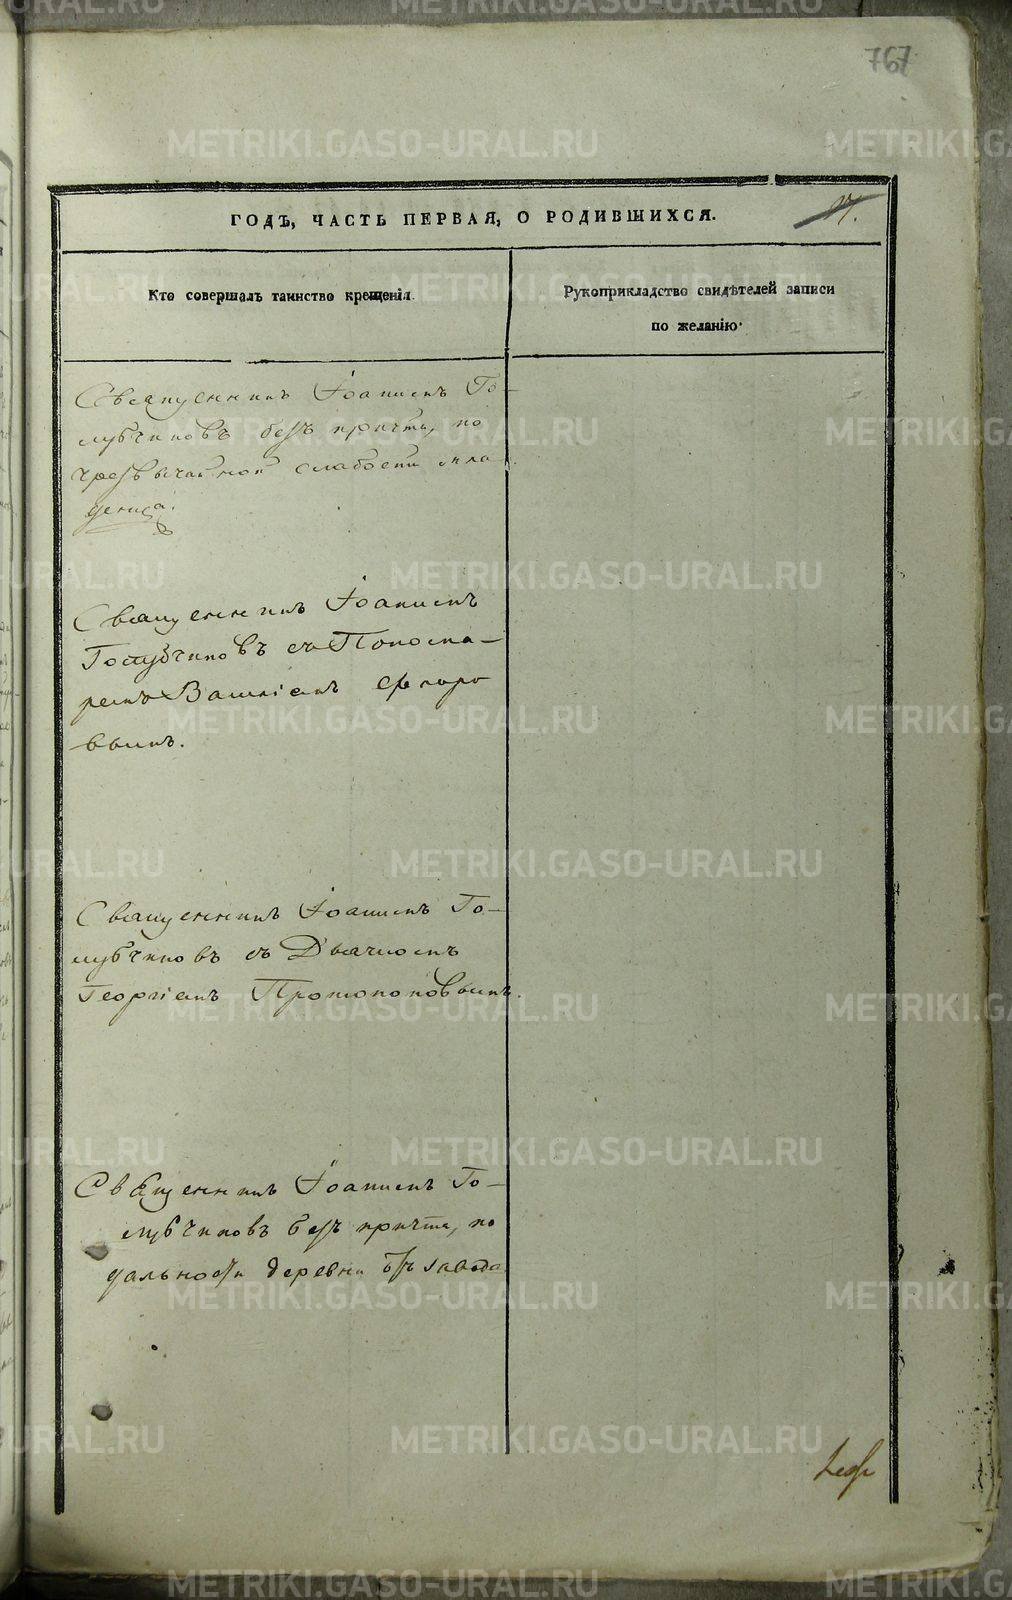 767
ГОДЪ, ЧАСТЬ ПЕРВАЯ, О РОДИВШИХСЯ.
Кто совершалъ таинство крещенія.
Рукоприкладство свидѣтелей записи
по желанію.
Священникъ Іоаннъ Го-
лубчиковъ безъ причта, по
чрезвычайной слабости мла-
денца.
Священникъ Іоаннъ
Голубчиковъ съ Пономаремъ
Василіемъ Ѳедоро
вымъ.
Священникъ Іоаннъ Го-
лубчиковъ съ Дьячкомъ
Георгіемъ Протопоповымъ.
Священникъ Іоаннъ Го-
лубчиковъ безъ причта, по
дальности деревни отъ завода
METRIKI.GASO-URAL.RU